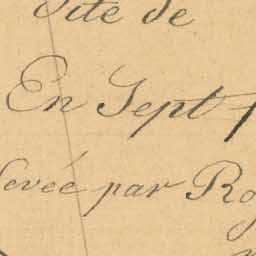 de
En Sept
levée par Ro